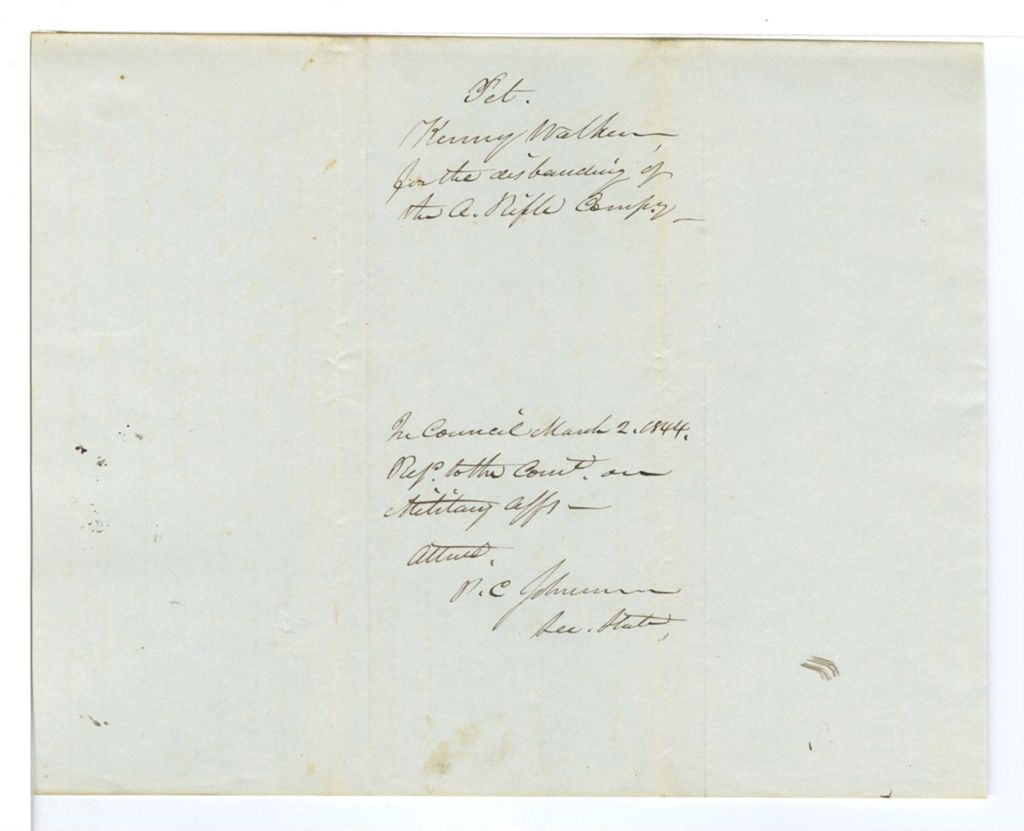 Pet.
Henry Walker
for the disbanding of
the A. Rifle Compy
In Council March 2. 1844.
Refd. to the Comt. on
Military Affs
Attest.
P. C Johnson
Sec. State,